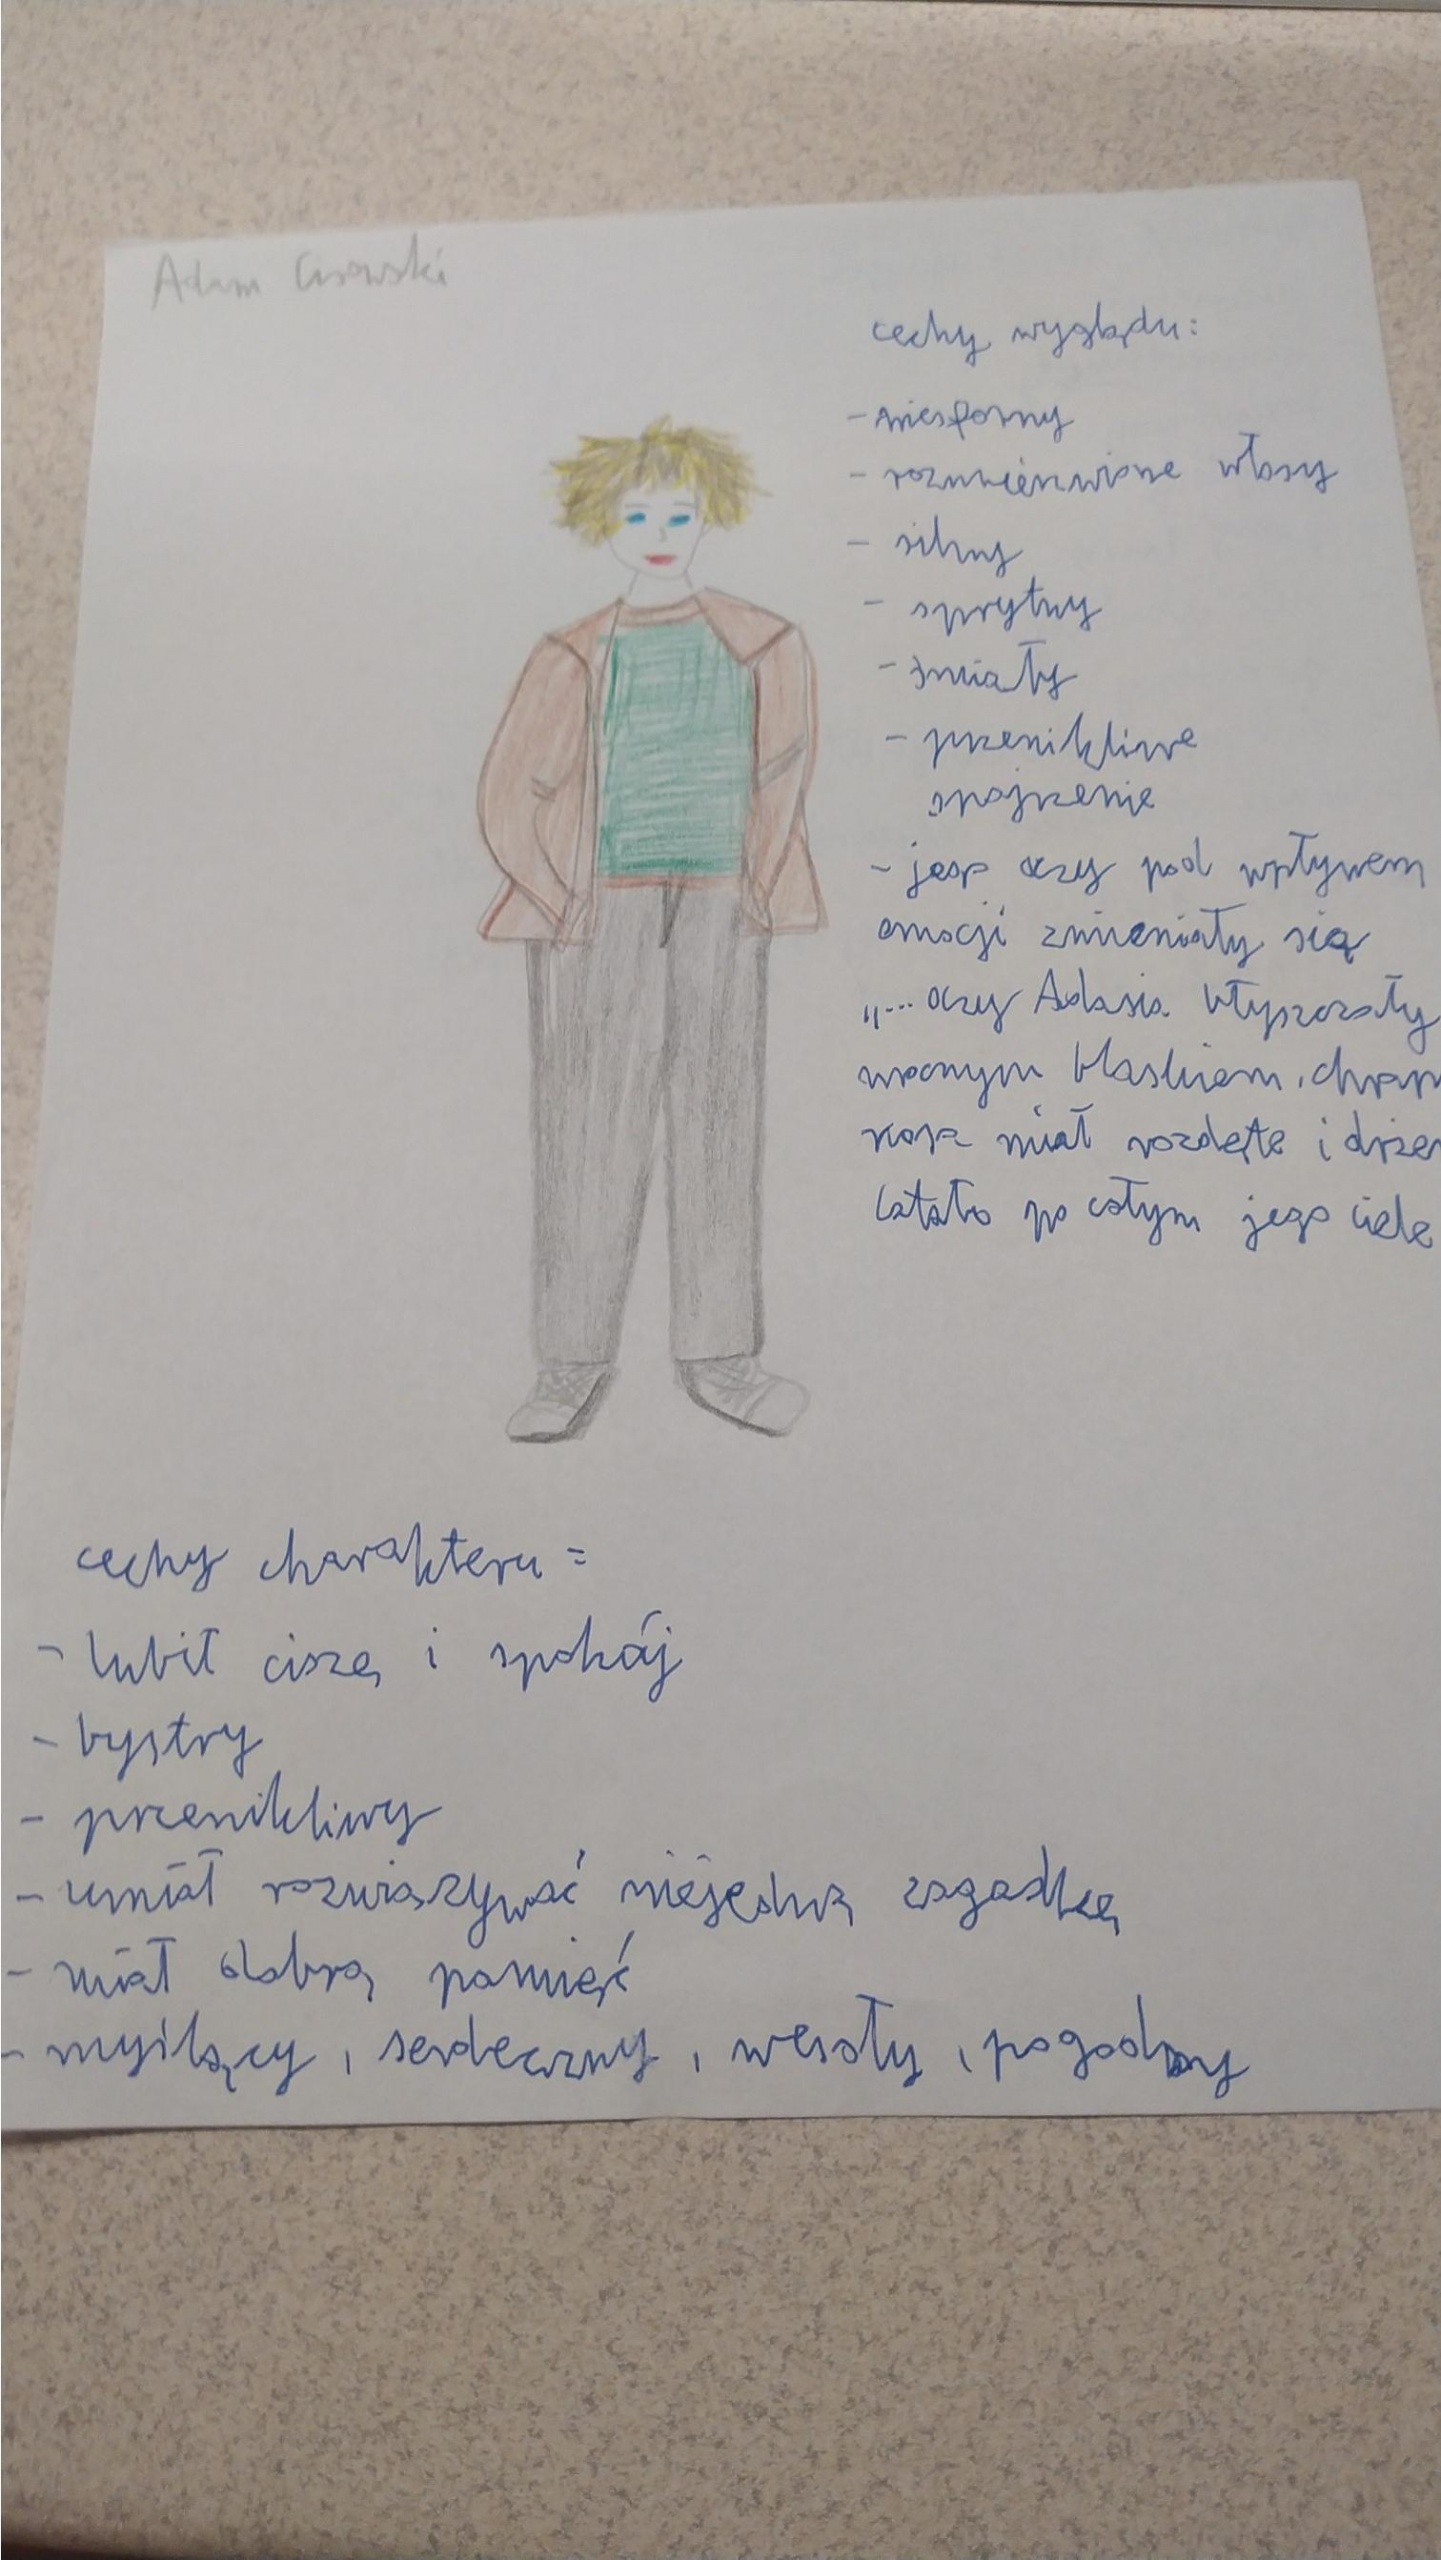 Adam Cisowski
cechy wyglądu:
- niesforny
- rozwiewione włosy
- silny
- sprytny
- śmiały
- przenikliwe
spojrzenie
- jego oczy pod wpływem
emocji zmieniały się
„... oczy Adasia błyszczały
mocnym blaskiem,
miał rozdęte i
latało po całym jego ciele
cechy charakteru =
- lubił ciszę i spokój
- bystry
- przenikliwy
- umiał rozwiązywać niejedną zagadkę
- miał dobrą pamięć
- myślący, serdeczny, wesoły, pogodny